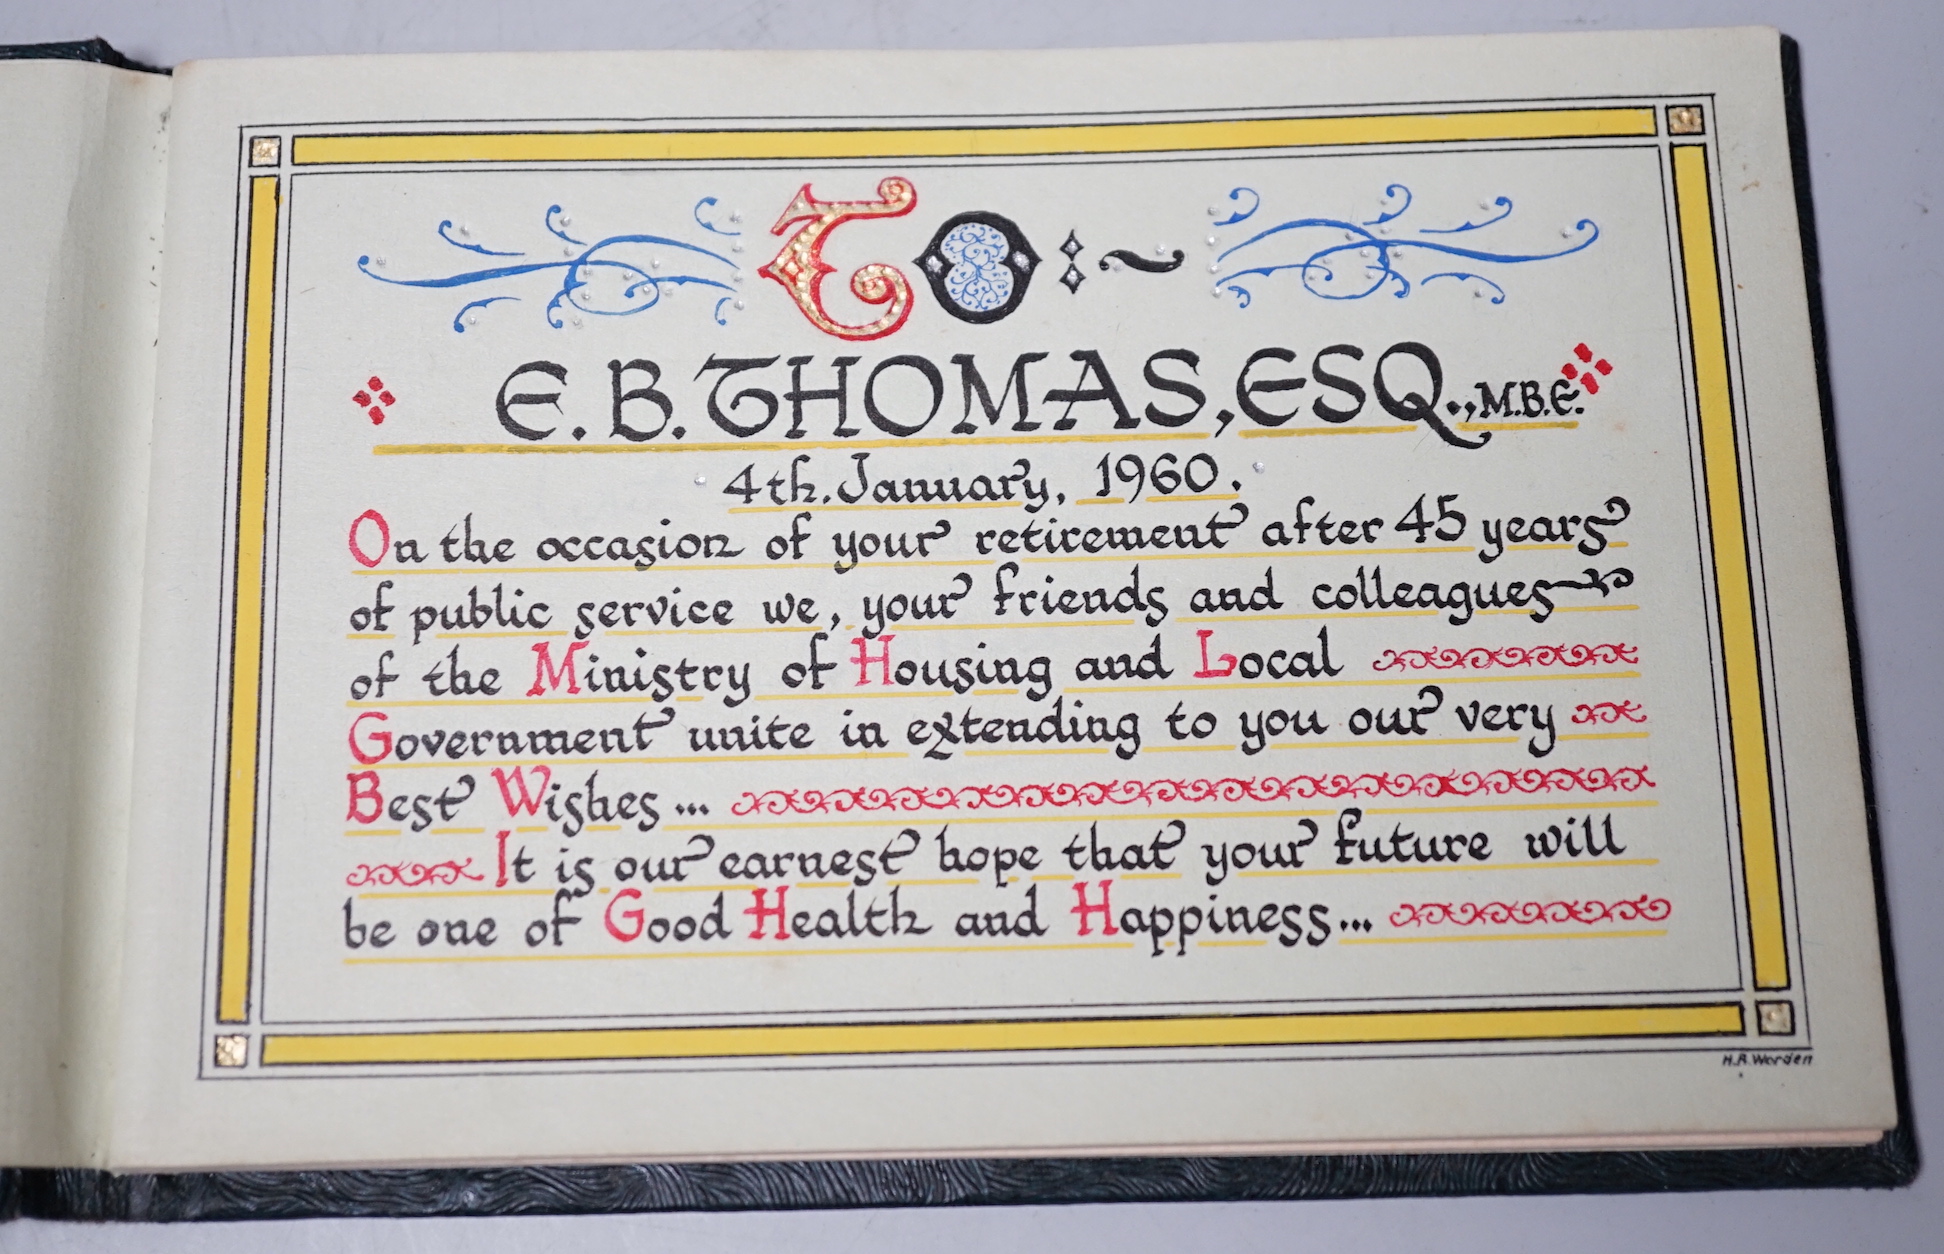 To:~
E. B. THOMAS, ESQ., M.B.E.
4th. January, 1960.
On the occasion of your retirement after 45 years
of public service we, your friends and colleagues
of the Ministry of Housing and Local
Government unite in extending to you our very
Best Wishes...
It is our earnest hope that your future will
be one of Good Health and Happiness...
H.R. Worden